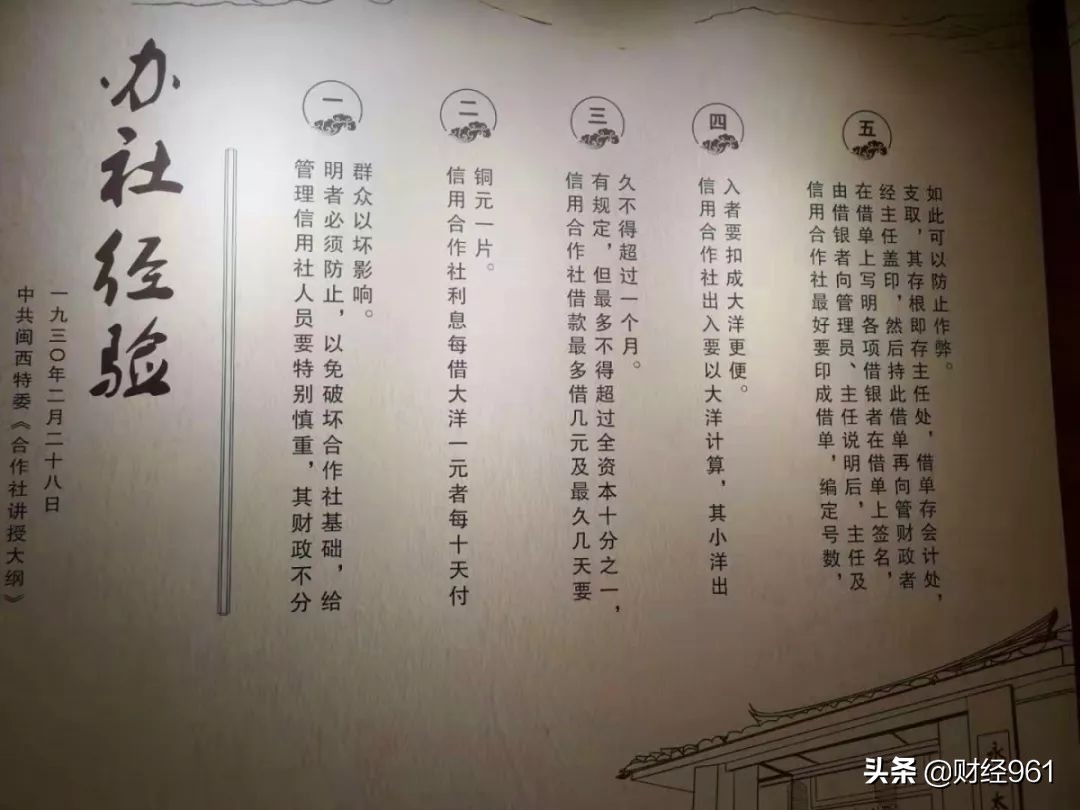 办社经验
中共闽西特委《合作社讲授大纲》
一九三〇年二月二十八日
一
管理信用社人员要特别慎重，其财政不分
明者必须防止，以免破坏合作社基础，给
群众以坏影响。
二
信用合作社利息每借大洋一元者每十天付
铜元一片。
三
信用合作社借款最多借几元及最久几天要
有规定，但最多不得超过全资本十分之一，
久不得超过一个月。
四
信用合作社出入要以大洋计算，其小洋出
入者要扣成大洋更便。
五
信用合作社最好要印成借单，编定号数，
由借银者向管理员、主任说明后，主任及
在借单上写明各项借银者在借单上签名，
经主任盖印，然后持此借单再向管财政者
支取，其存根即存主任处，借单存会计处，
如此可以防止作弊。
永
头条 @财经961